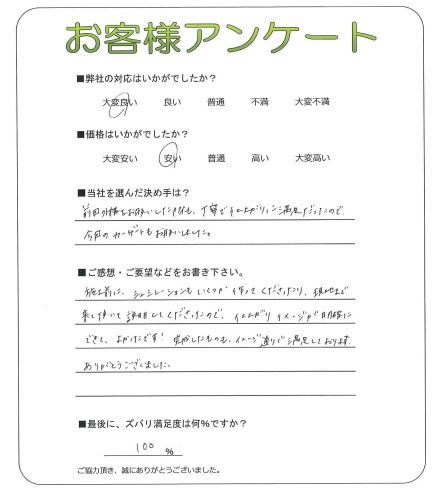 お客様アンケート
■弊社の対応はいかがでしたか？
大変良い 良い 普通 不満 大変不満
■価格はいかがでしたか？
大変安い 安い 普通 高い 大変高い
■当社を選んだ決め手は？
前回外構をお願いした時も、丁寧で仕上がりに満足だったので
今回のカーゲートもお願いしました。
■ご感想・ご要望などをお書き下さい。
施工前に、シュミレーションもいくつか作ってくださったり、現地まで
来て頂いて説明してくださったので、仕上がりイメージが明確に
できて、よかったです! 完成したものも、イメージ通りで満足しております。
ありがとうございました。
■最後に、ズバリ満足度は何%ですか？
100 %
ご協力頂き、誠にありがとうございました。